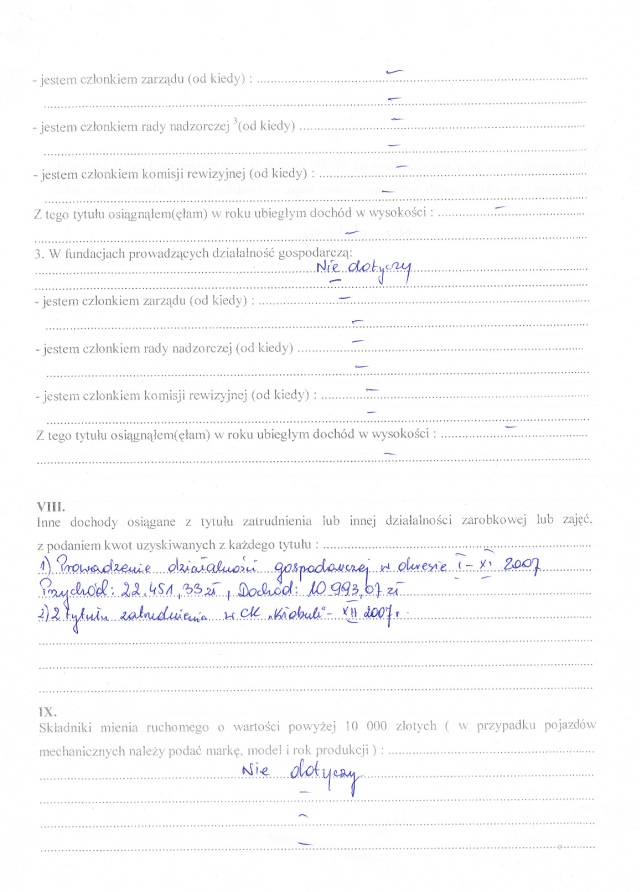 - jestem członkiem zarządu (od kiedy) : –
–
- jestem członkiem rady nadzorczej ³(od kiedy) –
–
- jestem członkiem komisji rewizyjnej (od kiedy) : –
–
Z tego tytułu osiągnąłem(ęłam) w roku ubiegłym dochód w wysokości : –
–
3. W fundacjach prowadzących działalność gospodarczą:
Nie dotyczy
–
- jestem członkiem zarządu (od kiedy) : –
–
- jestem członkiem rady nadzorczej (od kiedy) –
–
- jestem członkiem komisji rewizyjnej (od kiedy) : –
–
Z tego tytułu osiągnąłem(ęłam) w roku ubiegłym dochód w wysokości : –
–
VIII.
Inne dochody osiągane z tytułu zatrudnienia lub innej działalności zarobkowej lub zajęć,
z podaniem kwot uzyskiwanych z każdego tytułu :
1) Prowadzenie działalności gospodarczej w okresie I – XI 2007
Przychód: 22.451,33 zł, Dochód: 10 993,07 zł
2) Z tytułu zatrudnienia w CK – XII 2007r.
IX.
Składniki mienia ruchomego o wartości powyżej 10 000 złotych ( w przypadku pojazdów
mechanicznych należy podać markę, model i rok produkcji ) :
Nie dotyczy
–
–
–